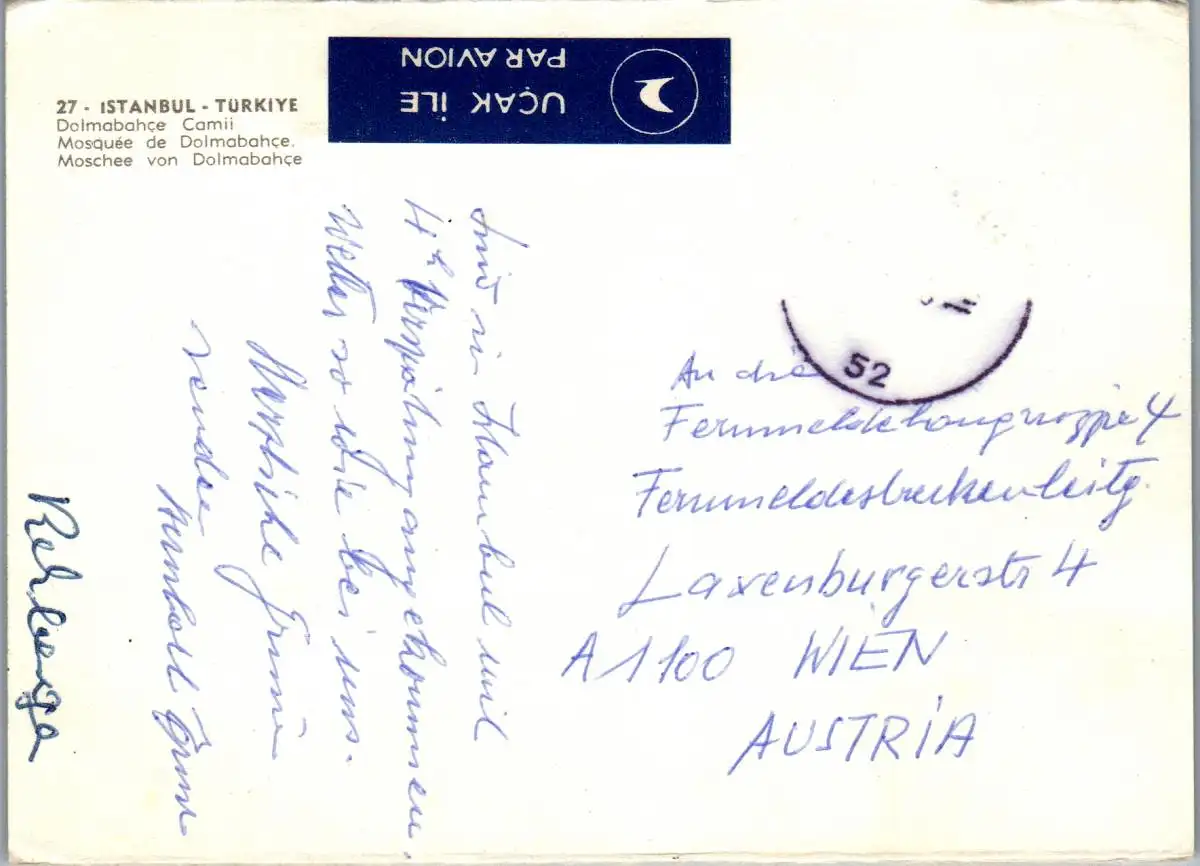 27 - ISTANBUL - TÜRKİYE
Dolmabahçe Camii
Mosquée de Dolmabahçe.
Moschee von Dolmabahçe
UÇAK İLE
PAR AVION
Sind in Istanbul mit
4h Verspätung angekommen.
Wetter so wie bei uns.
Herzliche Grüsse
senden
52
An die
4
Laxenburgerstr 4
A 1100 WIEN
AUSTRIA